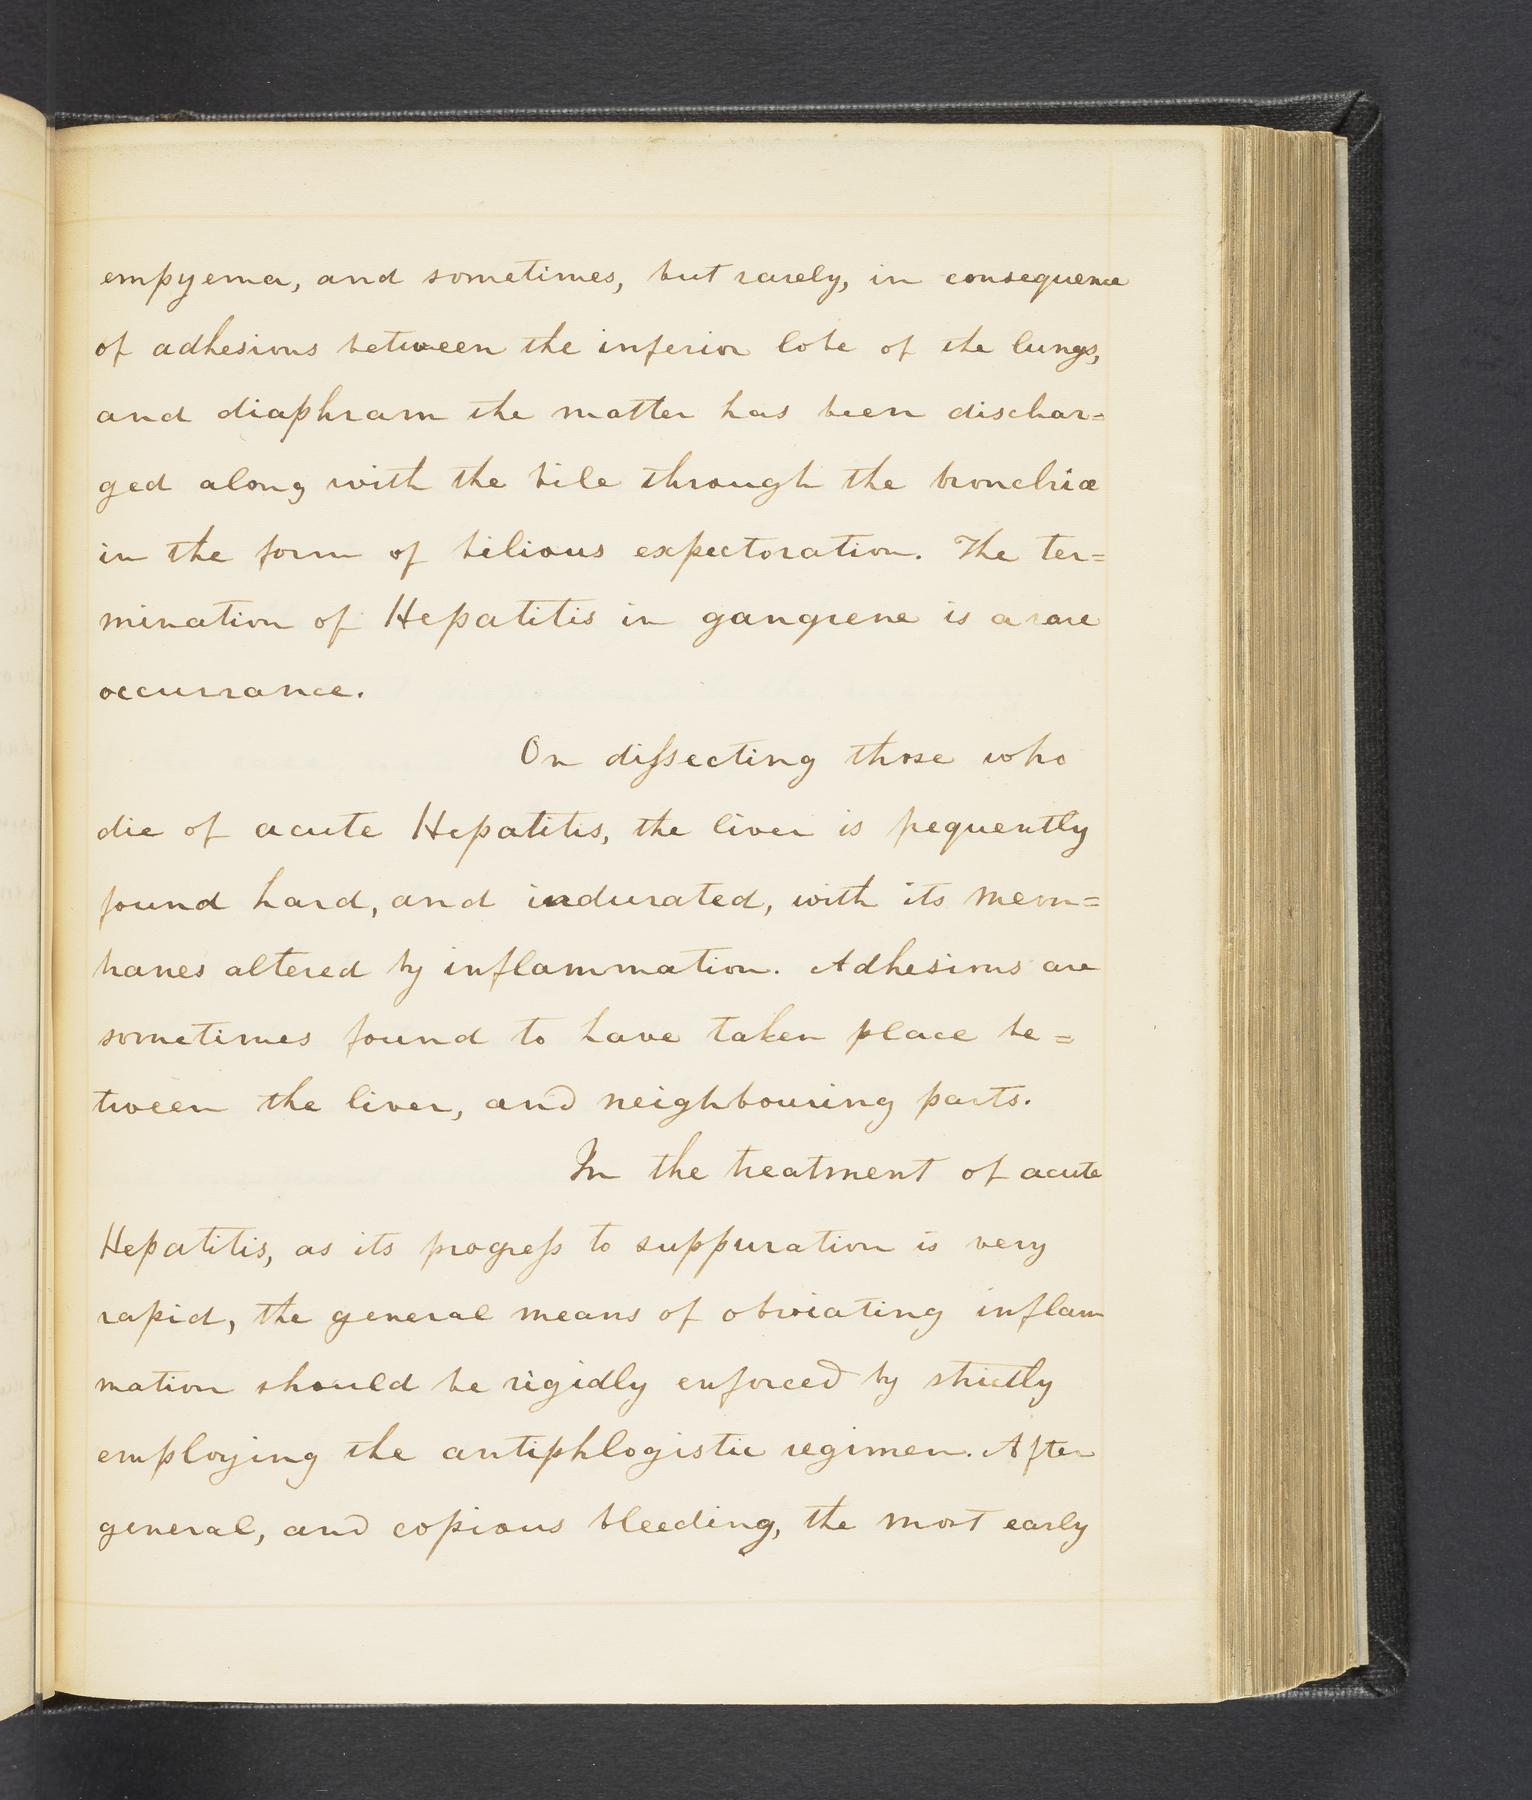 empyema, and sometimes, but rarely, in consequence
of adhesions between the inferior lobe of the lungs,
and diaphram the matter has been dischar=
ged along with the bile through the bronchiæ
in the form of bilious expectoration. The ter=
mination of Hepatitis in gangrene is a rare
occurrance.
On diſsecting those who
die of acute Hepatitis, the liver is frequently
found hard, and indurated, with its mem=
branes altered by inflammation. Adhesions are
sometimes found to have taken place be=
tween the liver, and neighbouring parts.
In the treatment of acute
Hepatitis, as its progreſs to suppuration is very
rapid, the general means of obviating inflam
mation should be rigidly enforced by strictly
employing the antiphlogistic regimen. After
general, and copious bleeding, the most early